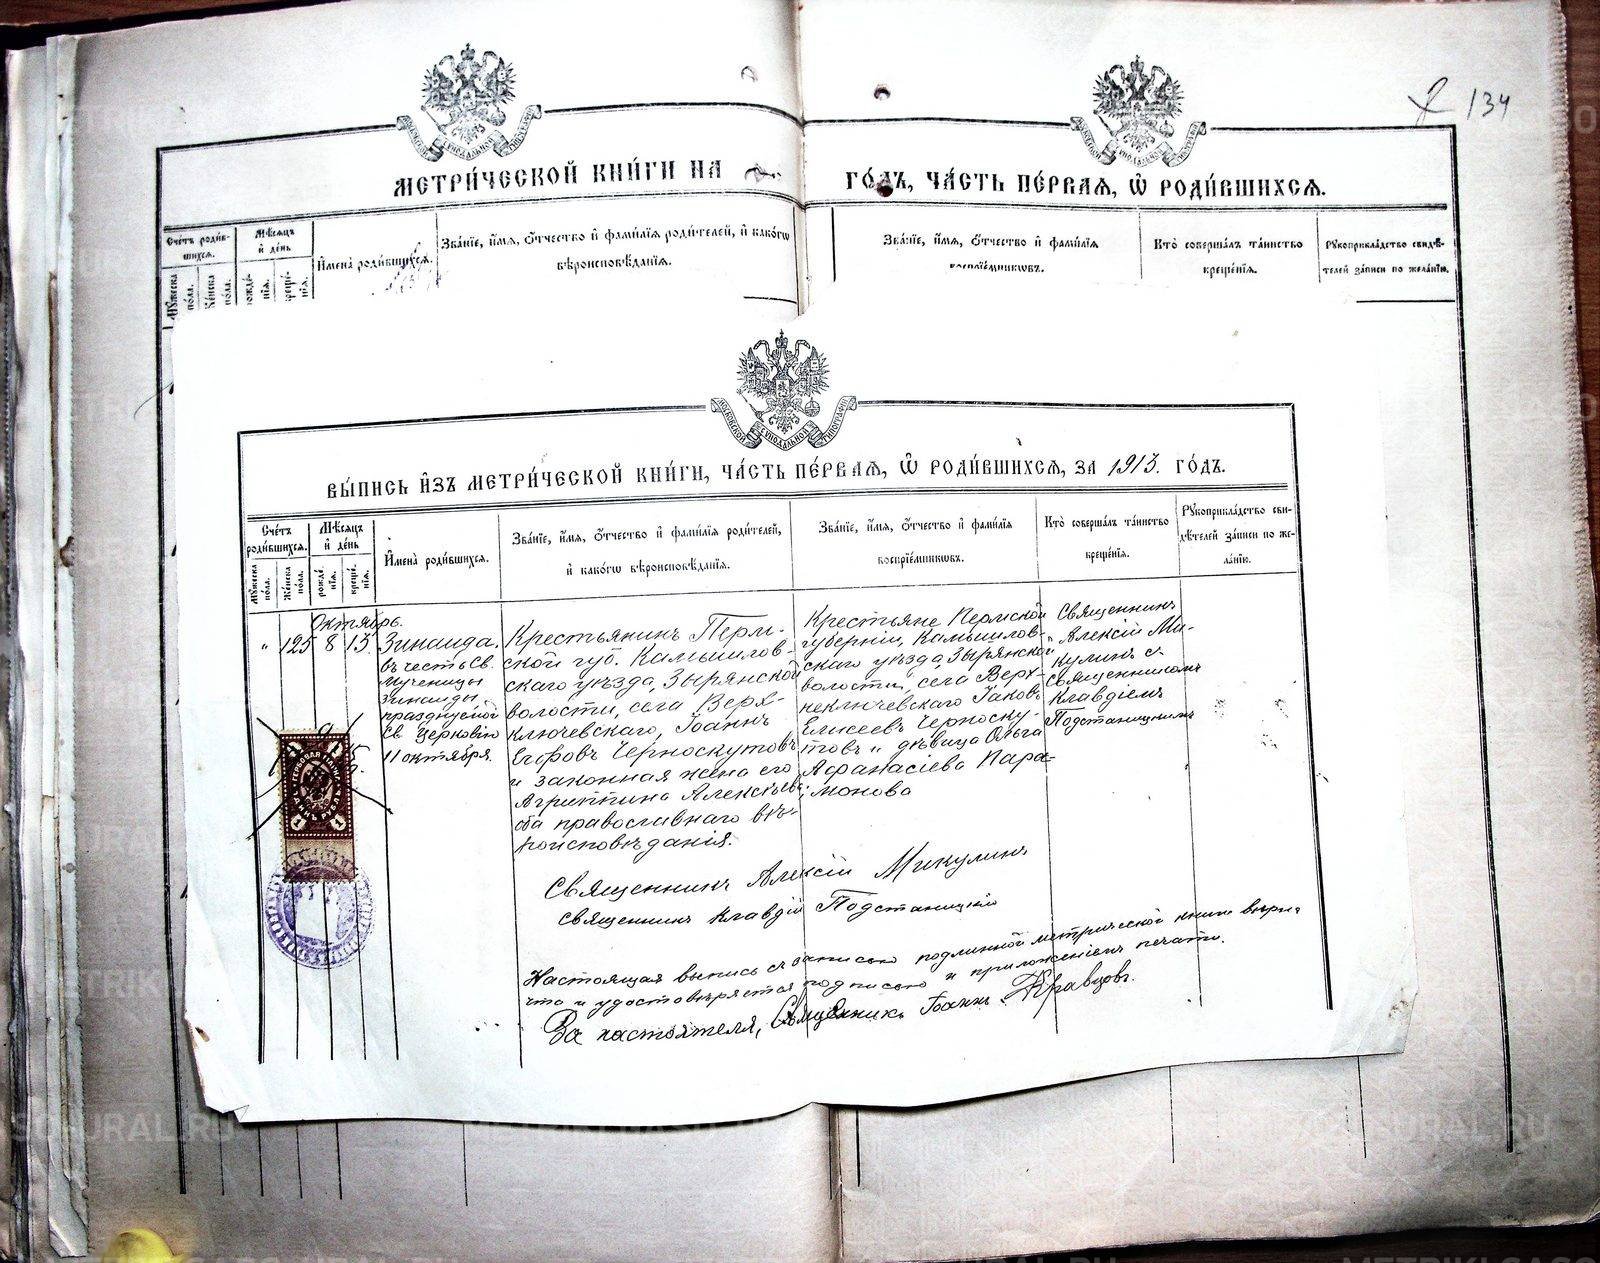 134
МЕТРИ́ЧЕСКОЙ КНИ́ГИ НА
ГО́ДЪ, ЧА́СТЬ ПЕ́РВАѦ, Ѿ РОДИ́ВШИХСѦ.
Сче́тъ роди́в-
шихсѧ.
Мѣ́сѧцъ
и҆ де́нь
И҆мена̀ роди́вшихсѧ.
Зва́нїе, и҆́мѧ, ѻ҆́тчество и҆ фами́лїѧ роди́телей, и҆ како́гѡ
вѣроисповѣ́данїѧ.
Зва́нїе, и҆́мѧ, ѻ҆́тчество и҆ фами́лїѧ
воспрїе́мниковъ.
Кто̀ соверша́лъ та́инство
креще́нїѧ.
Рꙋкоприкла́дство свидѣ́-
телей за́писи по жела́нїю.
Мꙋ́жеска
по́ла.
Же́нска
по́ла.
рожде́-
нїѧ.
креще́-
нїѧ.
МОСКОВСКОЙ СѴНОДАЛЬНОЙ ТИПОГРАФІИ
ВЫ́ПИСЬ И҆ЗЪ МЕТРИ́ЧЕСКОЙ КНИ́ГИ, ЧА́СТЬ ПЕ́РВАѦ, Ѿ РОДИ́ВШИХСѦ, ЗА 1913. ГО́ДЪ.
Сче́тъ
роди́вшихсѧ.
Мѣ́сѧцъ
и҆ де́нь
И҆мена̀ роди́вшихсѧ.
Зва́нїе, и҆́мѧ, ѻ҆́тчество и҆ фами́лїѧ роди́телей,
и҆ како́гѡ вѣроисповѣ́данїѧ.
Зва́нїе, и҆́мѧ, ѻ҆́тчество и҆ фами́лїѧ
воспрїе́мниковъ.
Кто̀ соверша́лъ та́инство
креще́нїѧ.
Рꙋкоприкла́дство сви-
дѣ́телей за́писи по же-
ла́нїю.
Мꙋ́жеска
по́ла.
Же́нска
по́ла.
рожде́-
нїѧ.
креще́-
нїѧ.
Октябрь.
" 125 8 13.
Зинаида.
въ честь св.
мученицы
Зинаиды,
празднуемой
Св. Церковію
11 октября.
Крестьянинъ Перм-
ской губ. Камышлов-
скаго уѣзда, Зырянской
волости, села Верх-
ключевскаго, Іоаннъ
Егоровъ Черноскутовъ
и законная жена его
Агриппина Алексѣева;
оба православнаго вѣ-
роисповѣданія.
Крестьяне Пермской
губерніи, Камышлов-
скаго уѣзда, Зырянской
волости, села Верх-
неключевскаго Іаковъ
Елисеевъ Черноску-
товъ и дѣвица Ольга
Афанасіева Пара-
монова
Священникъ
Алексій Ми-
кулинъ съ
священникомъ
Клавдіемъ
Подстаницкимъ
Священникъ Алексій Микулинъ
священникъ Клавдій Подстаницкій
Настоящая выпись съ записью подлинной метрической книги вѣрна
что и удостовѣряется подписью и приложеніемъ печати.
За настоятеля, Священникъ Іоаннъ Кравцовъ.